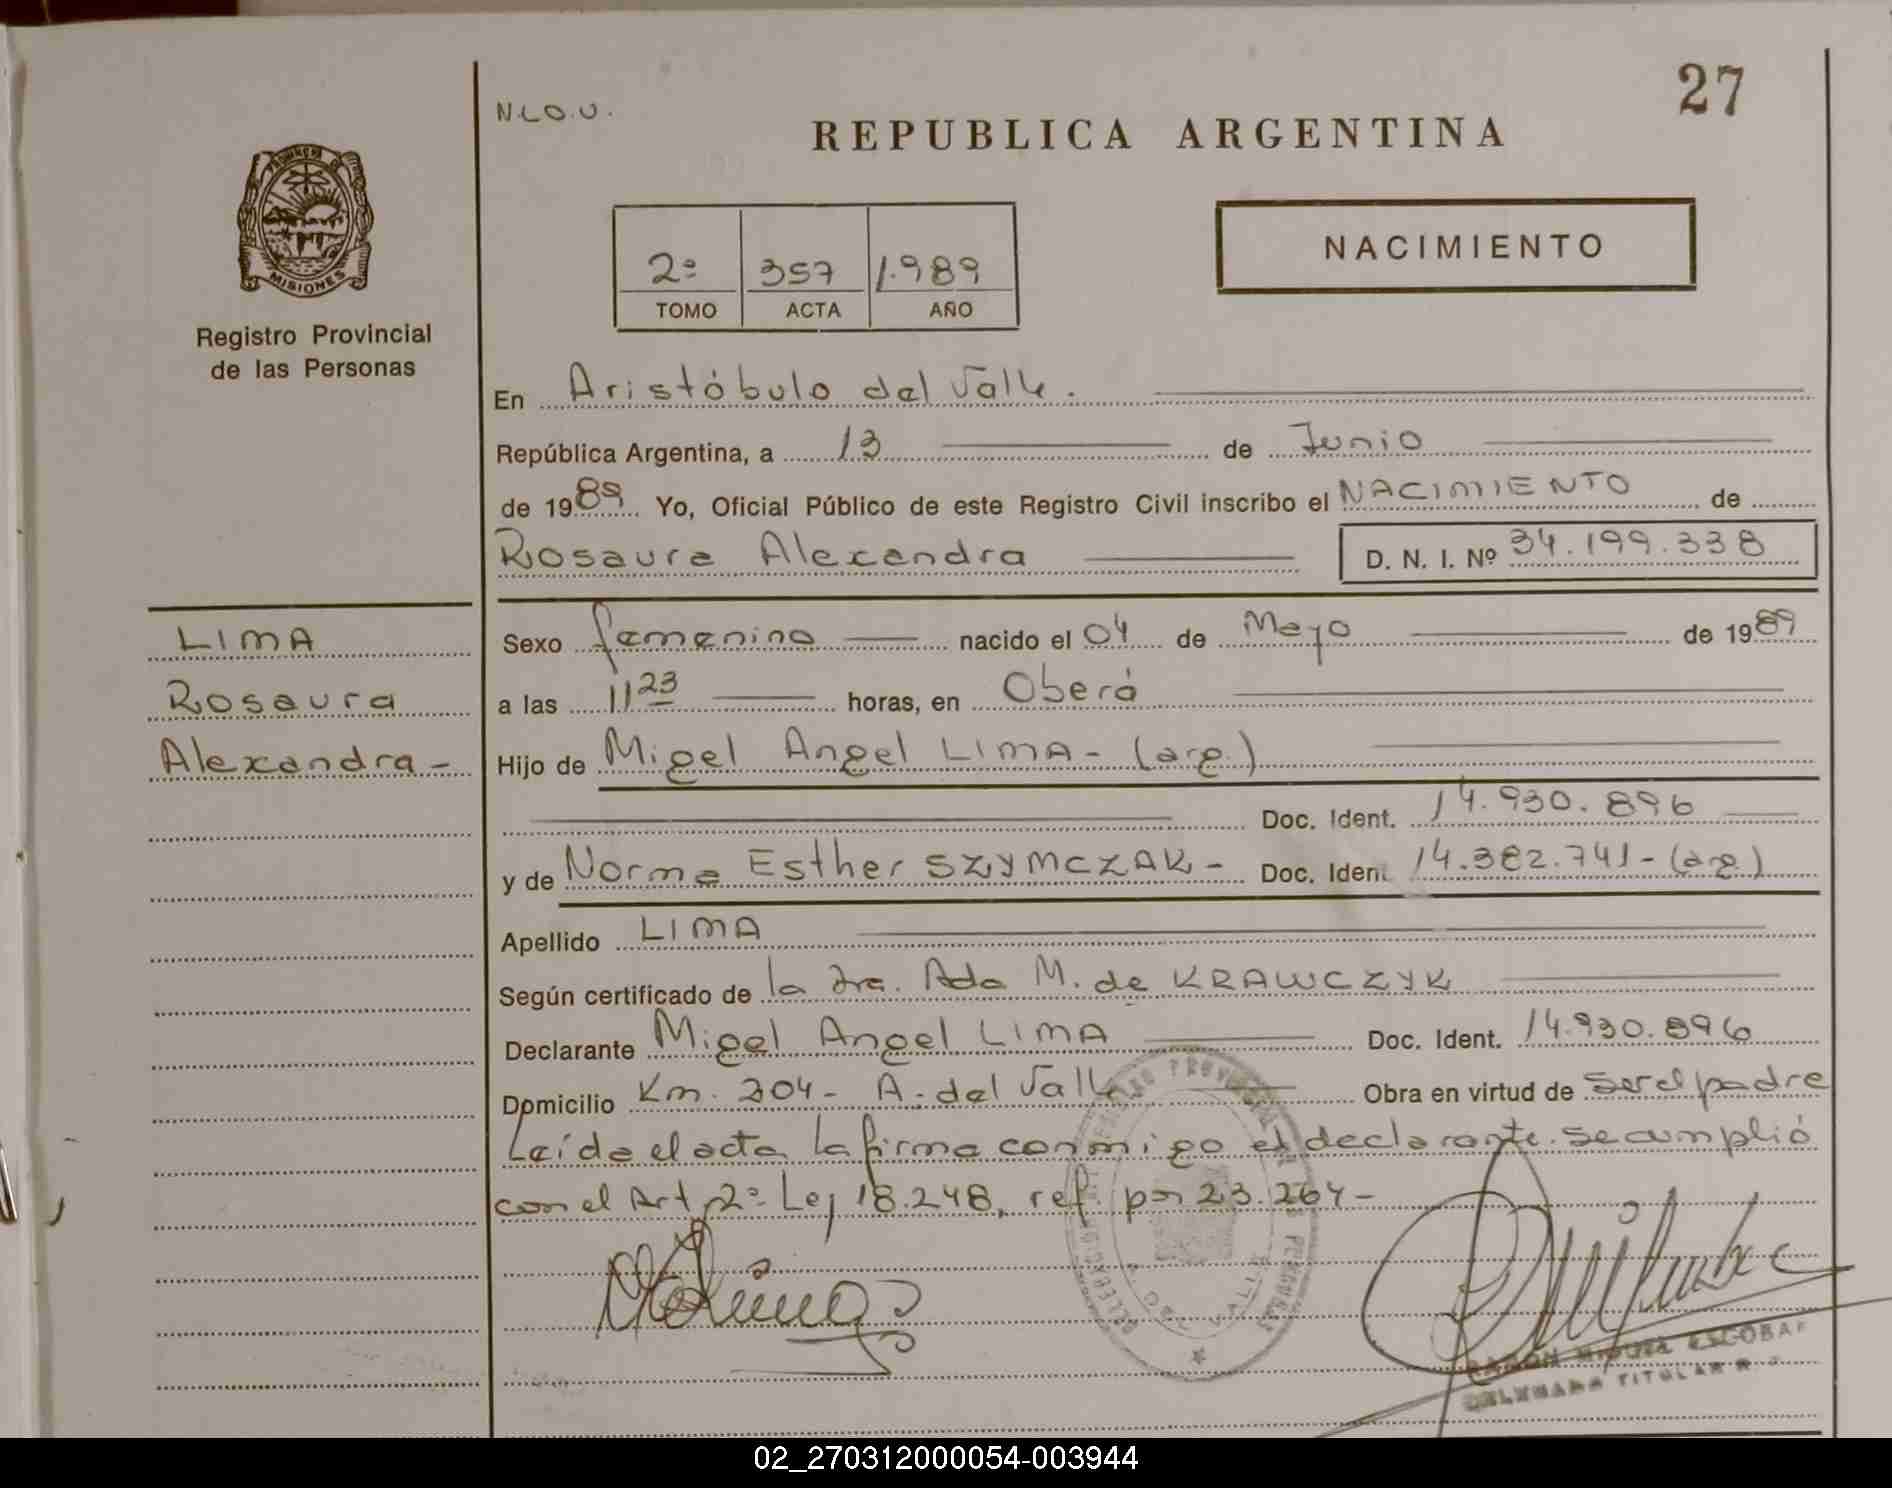 27
N.L.O.U.
REPUBLICA ARGENTINA
PROVINCIA DE
MISIONES
Registro Provincial
de las Personas
NACIMIENTO
2º 357 1.989
TOMO ACTA AÑO
En Aristóbulo del Valle.
República Argentina, a 13 de Junio
de 1989 Yo, Oficial Público de este Registro Civil inscribo el NACIMIENTO de
Rosaura Alexandra D. N. I. Nº 34.199.338
LIMA
Rosaura
Alexandra -
Sexo femenino nacido el 04 de Mayo de 1989
a las 11 23 horas, en Oberá
Hijo de Migel Angel LIMA - (arg.)
Doc. Ident. 14.930.896
y de Norma Esther SZYMCZAK - Doc. Ident. 14.382.741 - (arg.)
Apellido LIMA
Según certificado de la Dra. Ada M. de KRAWCZYK
Declarante Migel Angel LIMA Doc. Ident. 14.930.896
Domicilio Km. 204 - A. del Valle Obra en virtud de ser el padre
Leída el acta la firma conmigo el declarante. Se cumplió
con el Art. 2º Ley 18.248, ref por 23.264 -
A. DEL VALLE
RAMON MIGUEL ESCOBAR
DELEGADO TITULAR
02_270312000054-003944